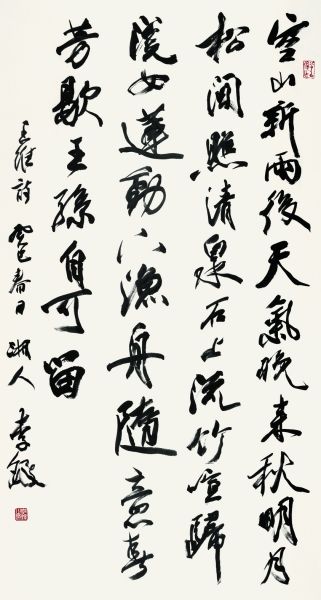 空山新雨後天氣晚来秋明月
松間照清泉石上流竹喧歸
浣女蓮動下漁舟隨意春
芳歇王孫自可留
王維詩 癸巳春日 湘人 李